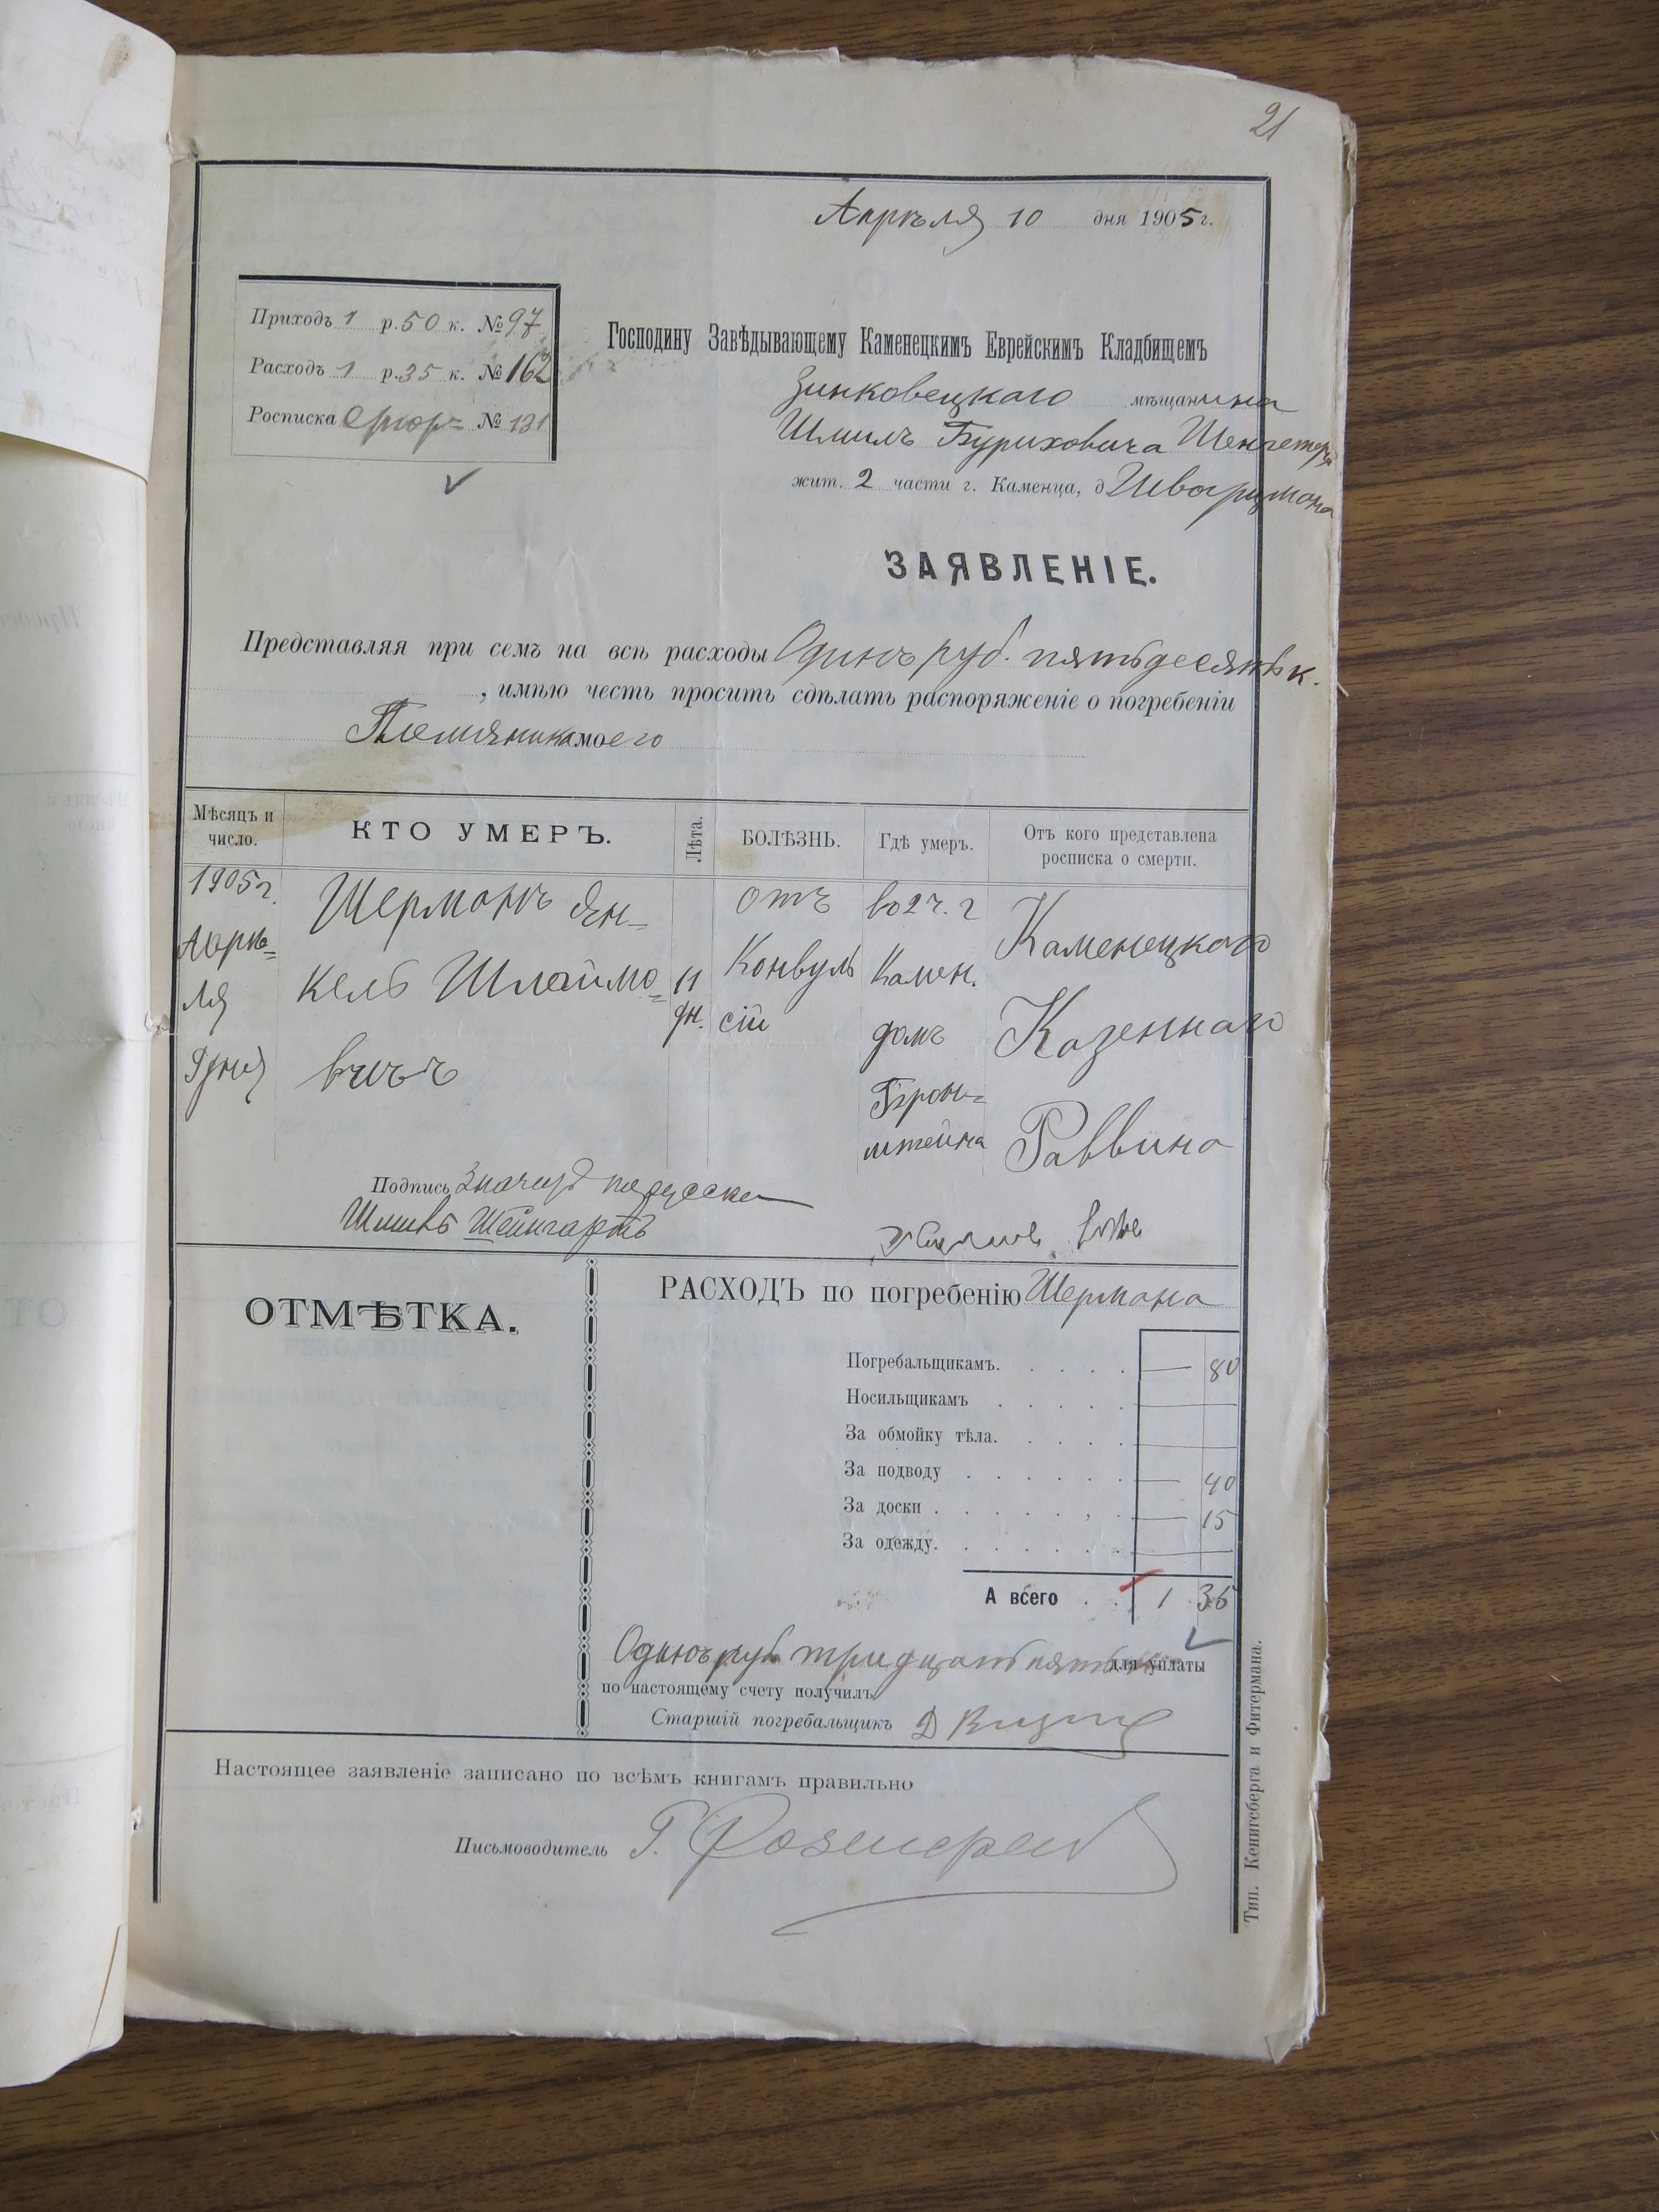 21
Апрѣля 10 дня 1905 г.
Приходъ 1 р. 50 к. № 97
Расходъ 1 р. 35 к. № 162
Росписка № 131
Господину Завѣдывающему Каменецкимъ Еврейскимъ Кладбищемъ
Зинковецкаго мѣщанина
Шмиль Буриховича
жит. 2 части г. Каменца, д Шварцмана
ЗАЯВЛЕНІЕ.
Представляя при семъ на всѣ расходы Одинъ руб. пятьдесятъ к.
, имѣю честь просить сдѣлать распоряженіе о погребеніи
Племяника моего
Мѣсяцъ и число.
КТО УМЕРЪ.
Лѣта.
БОЛѢЗНЬ.
Гдѣ умеръ.
Отъ кого представлена росписка о смерти.
1905 г.
Апрѣ=
ля
9 дня
Шерманъ Ян-
кель Шлоймо=
вичъ
11
дн.
отъ
Конвуль
сій
во 2 ч. г
Камен.
домъ
Брон=
штейна
Каменецкаго
Казеннаго
Раввина
Подпись значитъ по русски
Шмиль Шейнгартъ
ОТМѢТКА.
РАСХОДЪ по погребенію Шермана
Погребальщикамъ. — 80
Носильщикамъ
За обмойку тѣла.
За подводу — 40
За доски — 15
За одежду.
А всего 1 35
Одинъ руб тридцать пять для уплаты
по настоящему счету получилъ
Старшій погребальщикъ
Настоящее заявленіе записано по всѣмъ книгамъ правильно
Письмоводитель Г. Розенфельд
Тип. Кенигсберга и Фитермана.